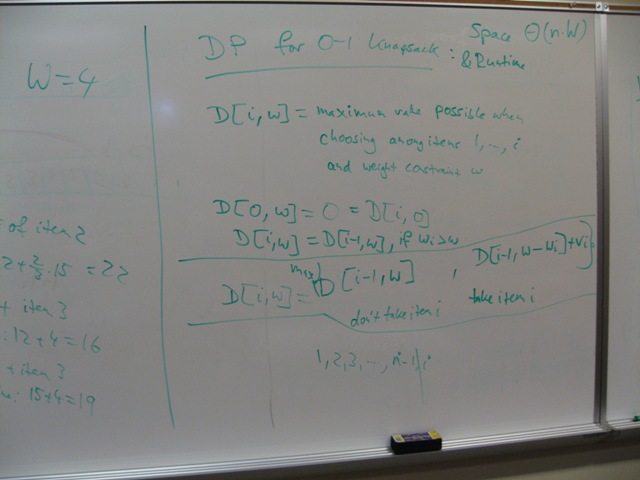 W=4
of item 2
2+2/3·15 = 22
+ item 3
: 12+4=16
+ item 3
: 15+4=19
DP for 0-1 Knapsack :
Space Θ(n·W)
& Runtime
D[i,w] = maximum value possible when
choosing among items 1,...,i
and weight constraint w
D[0,w] = 0 = D[i,0]
D[i,w] = D[i-1,w], if wi>w
D[i,w] = max{D[i-1,w] , D[i-1,w-wi]+vi}
don't take item i
take item i
1,2,3,...,n-1,i